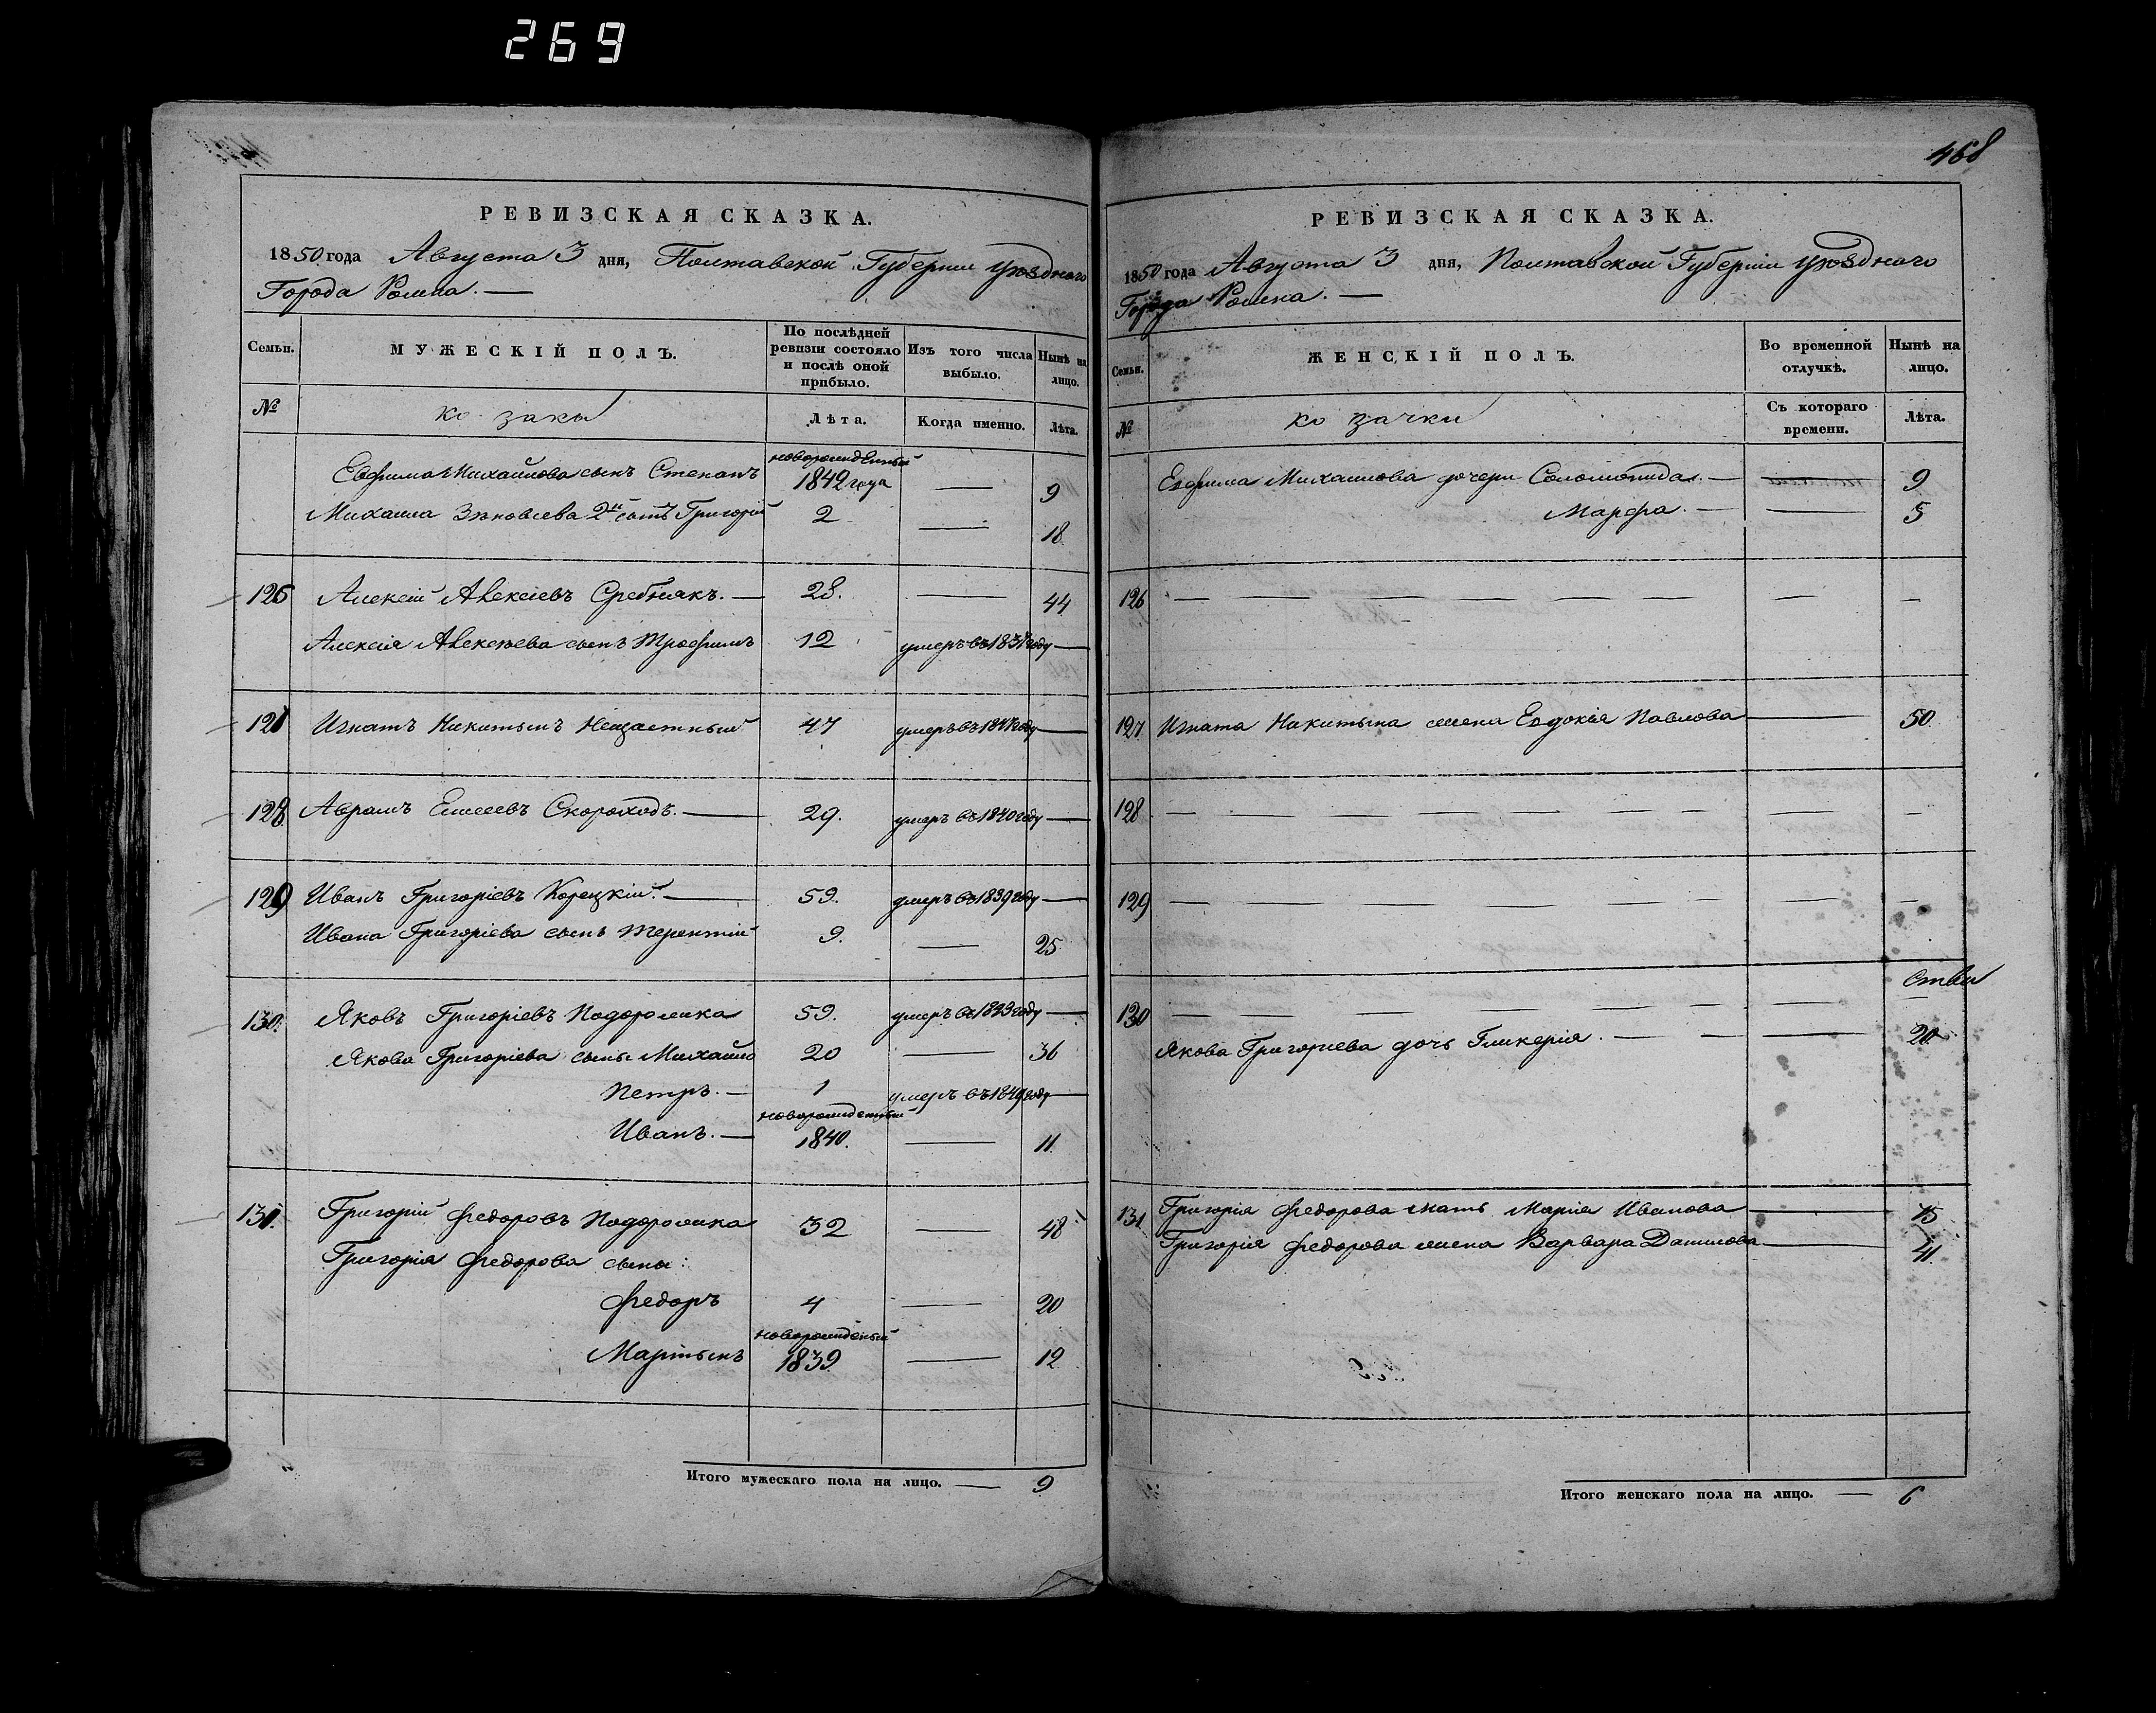 269
468
РЕВИЗСКАЯ СКАЗКА.
1850 года Августа 3 дня, Полтавской Губернии уезднаго
Города Ромна. —
Семьи. МУЖЕСКІЙ ПОЛЪ. По послѣдней ревизіи состояло и послѣ оной прибыло. Изъ того числа выбыло. Нынѣ на лицо.
№ козаки Лѣта. Когда именно. Лѣта.
Евфима Михайлова сынъ Степанъ новорожденный 1842 года — 9
Михаила Зѣновіева 2й сынъ Григорій 2 — 18
126 Алексій Алексіевъ Сребнякъ. — 28. — 44
Алексія Алексѣева сынъ Трофимъ 12 умеръ въ 1837 году —
127 Игнатъ Никитинъ Нещастный 47 умеръ въ году —
128 Аврамъ Елисеевъ Скороходъ. — 29. умеръ въ 1840 году —
129 Иванъ Григоріевъ Корецкій. — 59. умеръ въ 1839 году —
Ивана Григоріева сынъ Терентій 9. — 25
130. Яковъ Григоріевъ Подорожка 59. умеръ въ году —
Якова Григоріева сыны Михайло 20 — 36
Петръ. — 1 умеръ въ 1849 году —
Иванъ. — новорожденный 1840. — 11
131. Григорій Федоровъ Подорожка 32 — 48
Григорія Федорова сыны:
Федоръ 4 — 20
Мартынъ новорожденый 1839 — 12
Итого мужескаго пола на лицо. — 9
РЕВИЗСКАЯ СКАЗКА.
1850 года Августа 3 дня, Полтавской Губерніи уезднаго
Города Ромна. —
Семьи. ЖЕНСКІЙ ПОЛЪ. Во временной отлучкѣ. Нынѣ на лицо.
№ козачки Съ котораго времени. Лѣта.
Евфима Михайлова дочери Соломонида. — — 9
Марфа. — — 5
126 — — — — — — — — —
127. Игната Никитина жена Евдокія Павлова — 50
128 — — — — — — — — —
129 — — — — — — — — —
130 — — — — — — — — —
Якова Григориева дочь Гликерія. — — — 20
131 Григорія Федорова мать Марія Иванова — 75
Григорія Федорова жена Варвара Данилова — 41
Итого женскаго пола на лицо. — 6